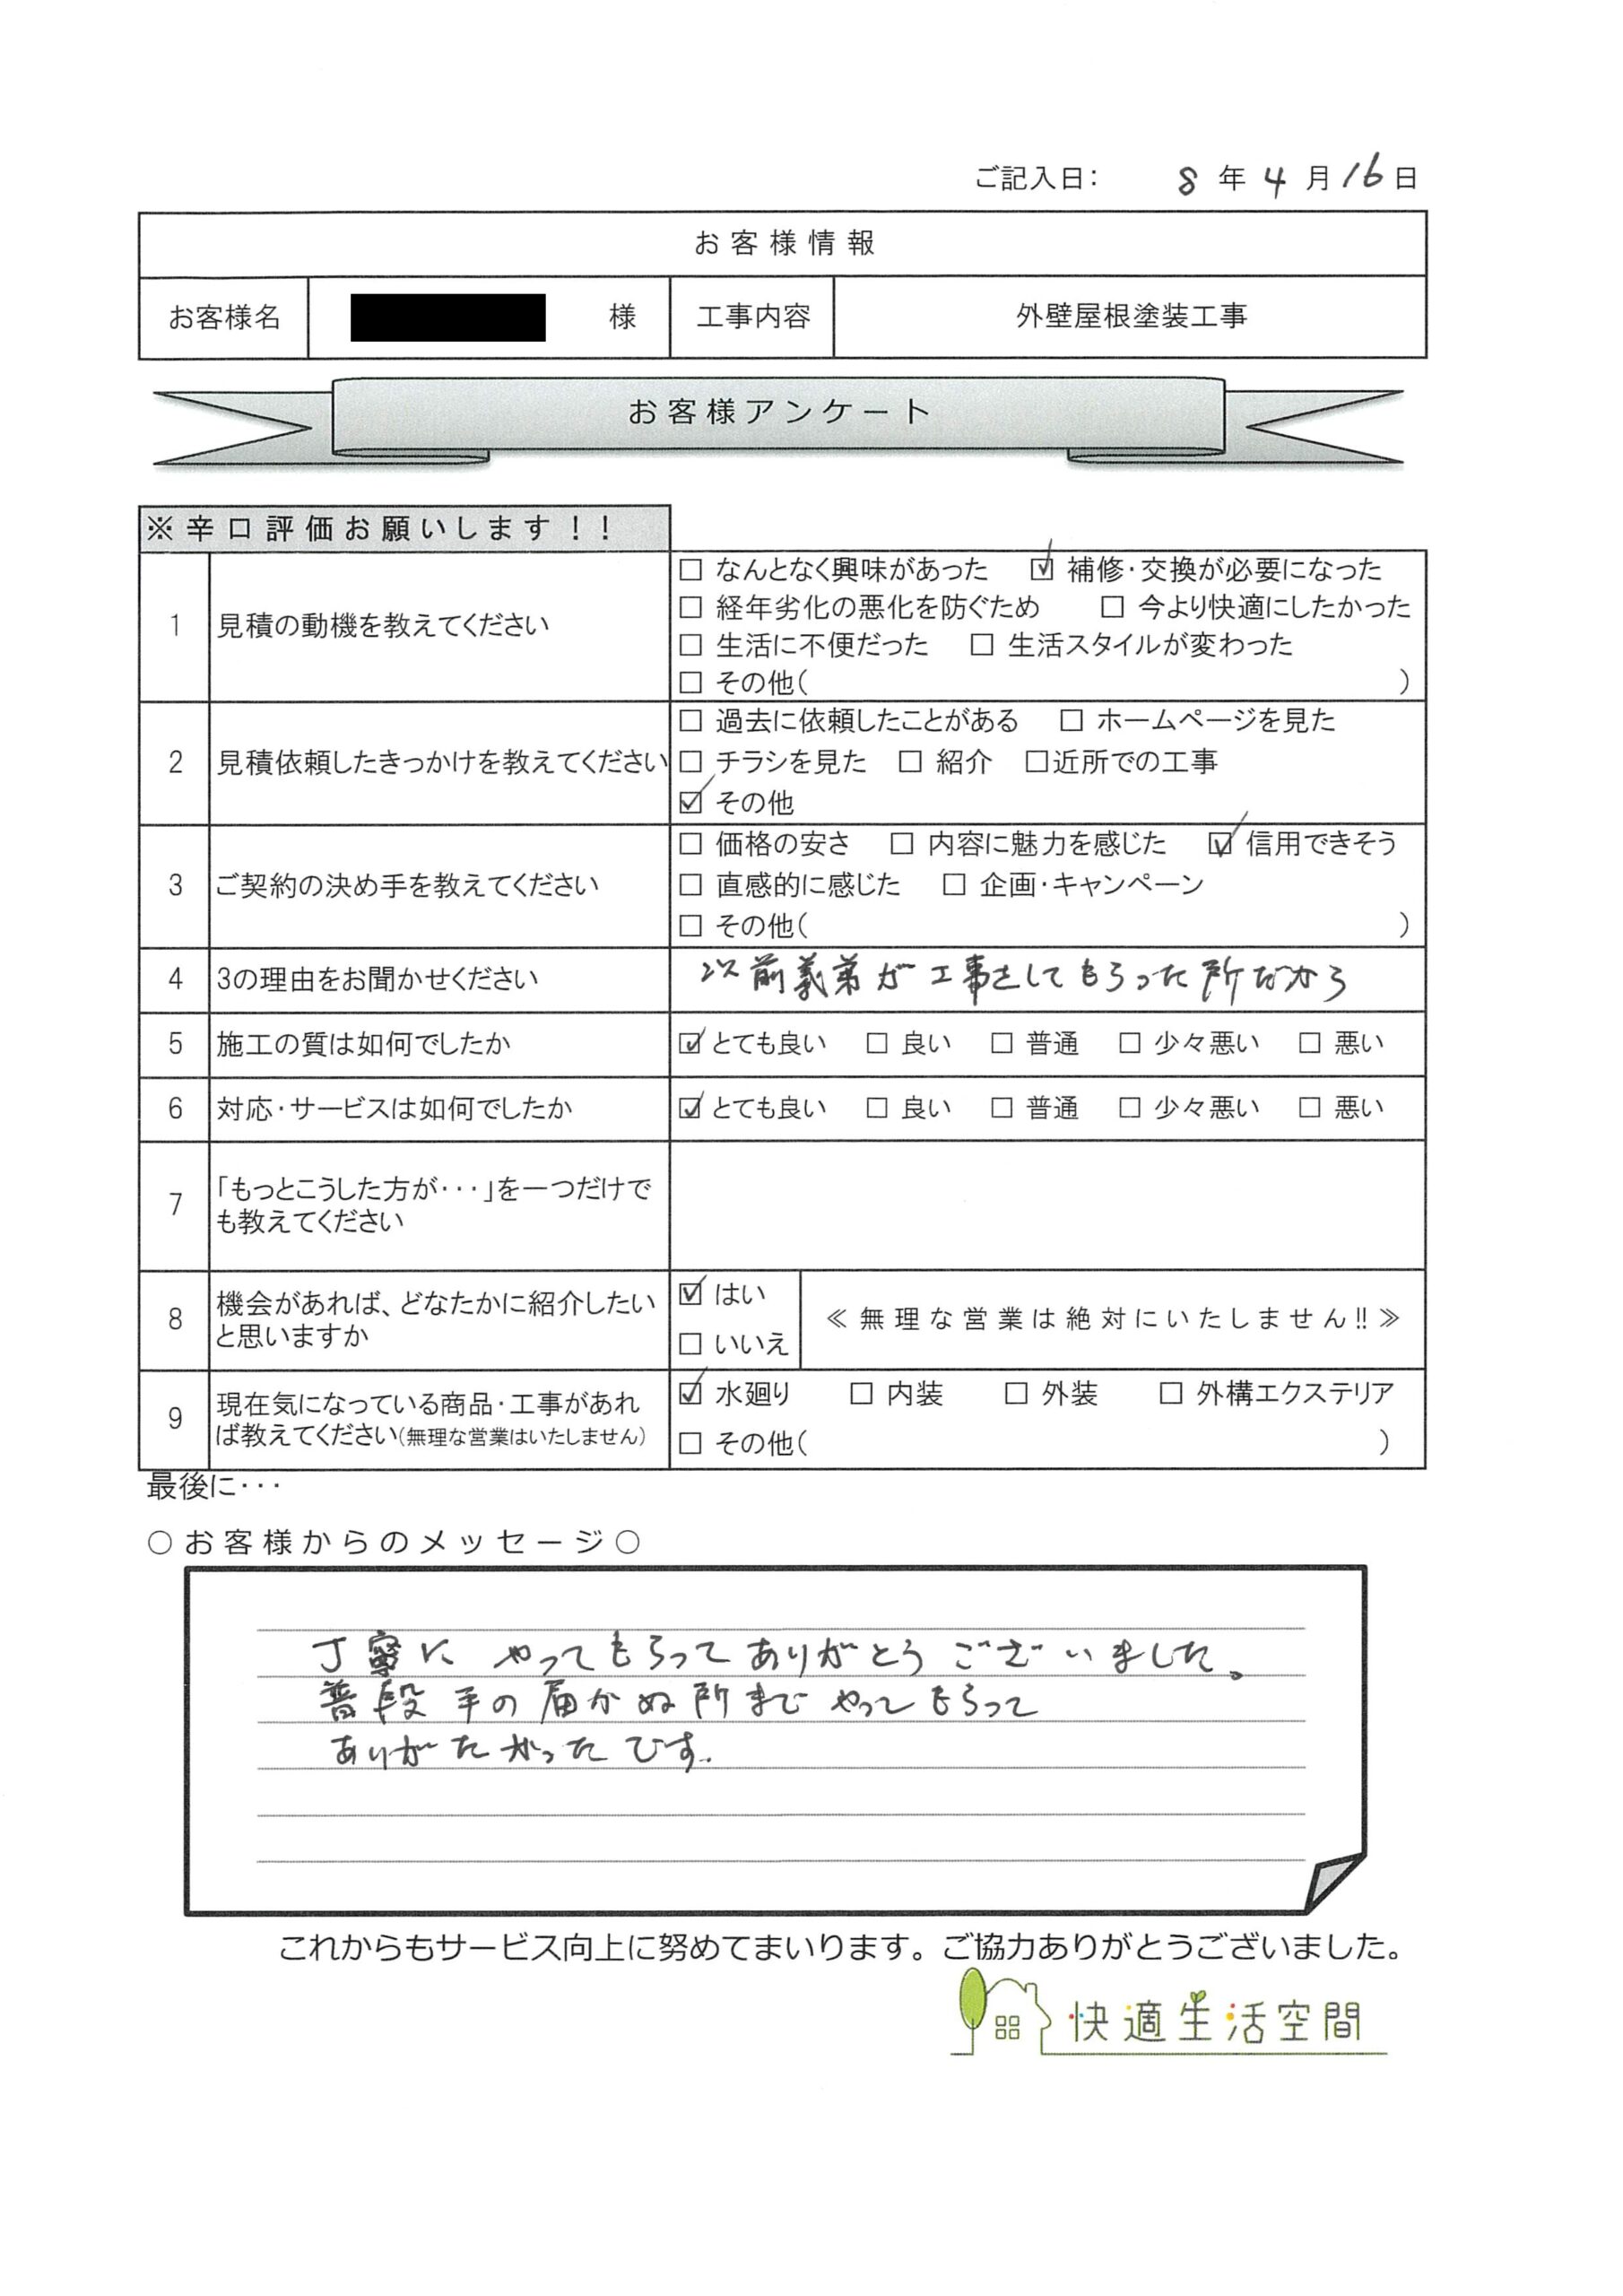 ご記入日: 8年4月16日
お客様情報
お客様名 様 工事内容 外壁屋根塗装工事
お客様アンケート
※辛口評価お願いします!!
1 見積の動機を教えてください
□ なんとなく興味があった ☑ 補修・交換が必要になった
□ 経年劣化の悪化を防ぐため □ 今より快適にしたかった
□ 生活に不便だった □ 生活スタイルが変わった
□ その他( )
2 見積依頼したきっかけを教えてください
□ 過去に依頼したことがある □ ホームページを見た
□ チラシを見た □ 紹介 □近所での工事
☑ その他
3 ご契約の決め手を教えてください
□ 価格の安さ □ 内容に魅力を感じた ☑ 信用できそう
□ 直感的に感じた □ 企画・キャンペーン
□ その他( )
4 3の理由をお聞かせください 以前義弟が工事をしてもらった所だから
5 施工の質は如何でしたか ☑ とても良い □ 良い □ 普通 □ 少々悪い □ 悪い
6 対応・サービスは如何でしたか ☑ とても良い □ 良い □ 普通 □ 少々悪い □ 悪い
7 「もっとこうした方が・・・」を一つだけで
も教えてください
8 機会があれば、どなたかに紹介したい
と思いますか
☑ はい
□ いいえ
≪無理な営業は絶対にいたしません!!≫
9 現在気になっている商品・工事があれ
ば教えてください(無理な営業はいたしません)
☑ 水廻り □ 内装 □ 外装 □ 外構エクステリア
□ その他( )
最後に・・・
○お客様からのメッセージ○
丁寧に やってもらって ありがとう ございました。
普段 手の届かぬ所まで やってもらって
ありがたかったです.
これからもサービス向上に努めてまいります。ご協力ありがとうございました。
快適生活空間